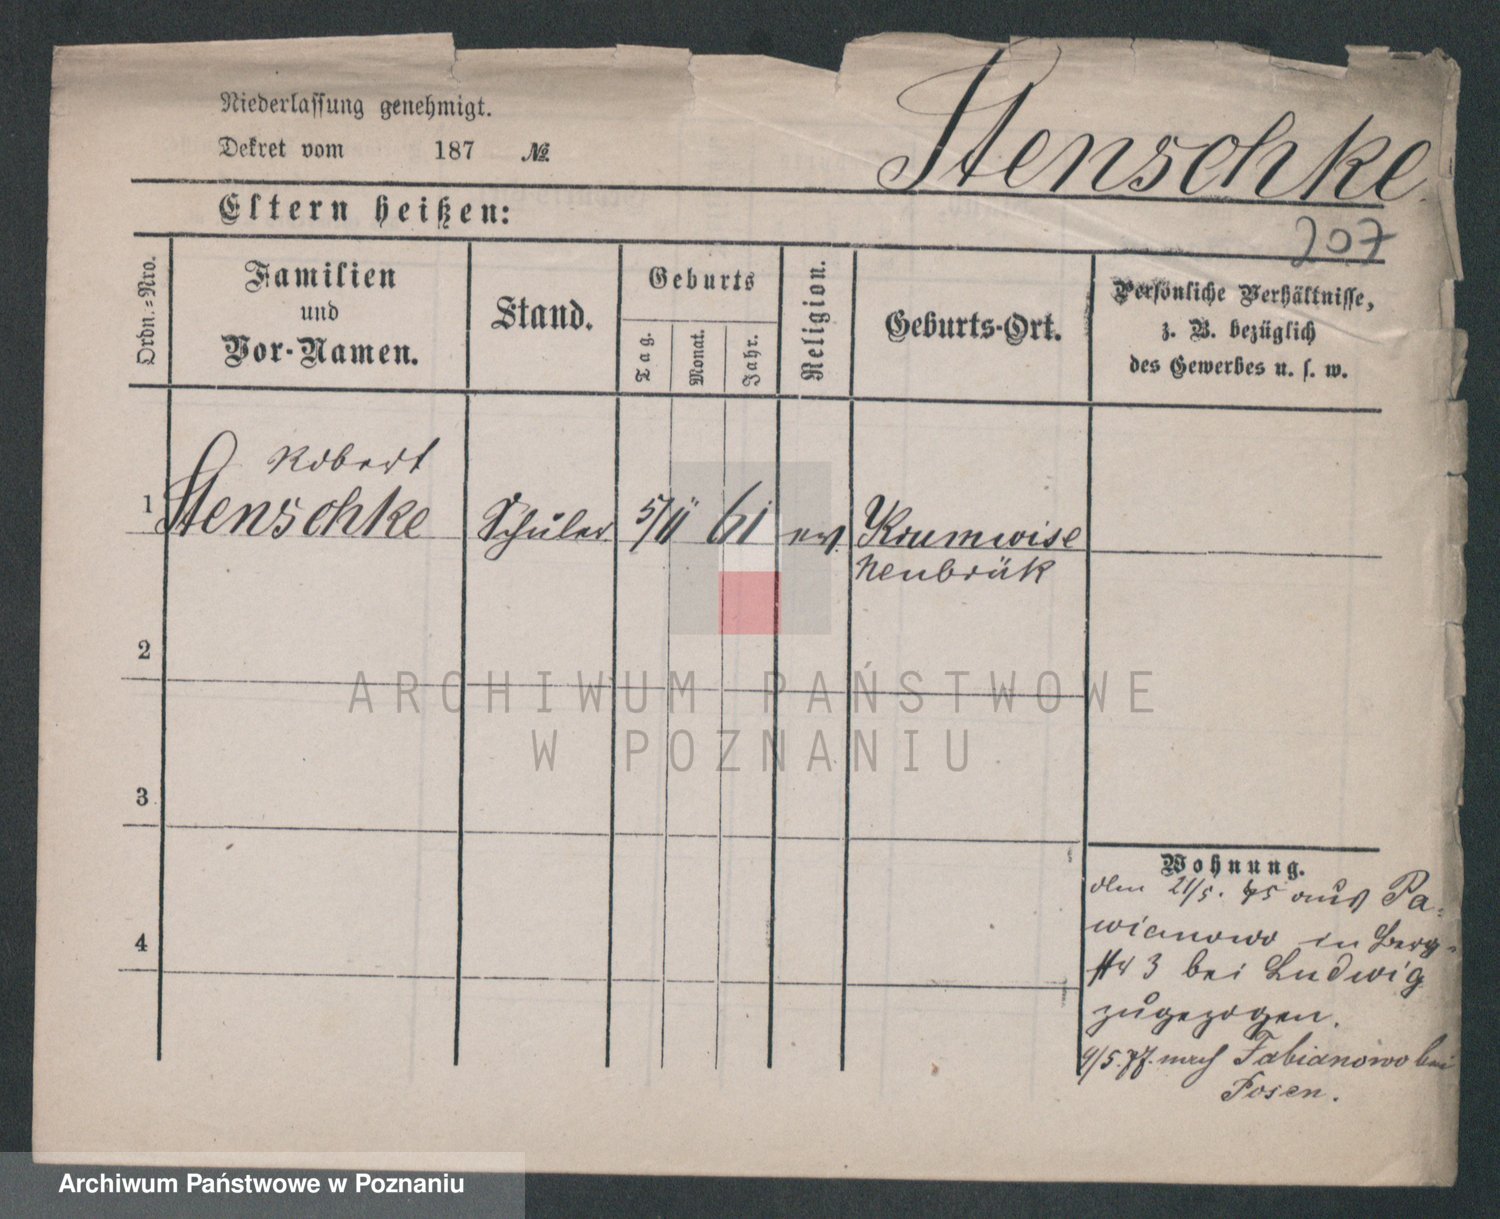 Niederlassung genehmigt.
Dekret vom 187 №
Stenschke
207
Eltern heißen:
Ordn.-Nro.
Familien
und
Vor-Namen.
Stand.
Geburts
Tag.
Monat.
Jahr.
Religion.
Geburts-Ort.
Persönliche Verhältnisse,
z. B. bezüglich
des Gewerbes u. s. w.
Robert
1 Stenschke Schüler 5/11 61 ev. Krumwise
Neubrük
2
3
4
Wohnung.
den 21/5. 75 aus Pa-
wianowo in Berg-
str 3 bei Ludwig
zugezogen.
9/5. 77. nach Fabianowo bei
Posen.
ARCHIWUM PAŃSTWOWE
W POZNANIU
Archiwum Państwowe w Poznaniu